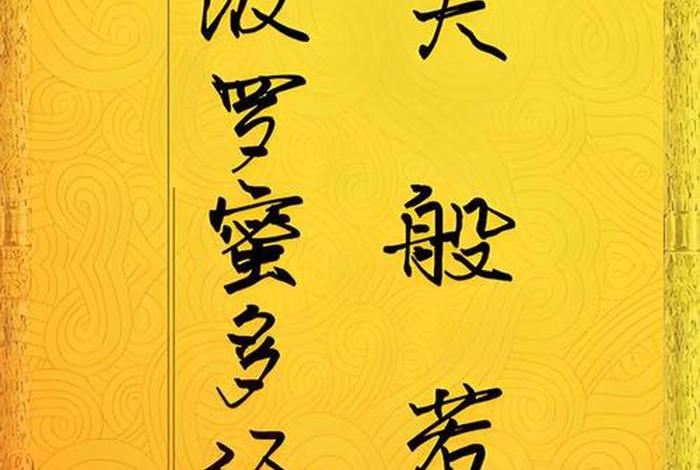 大般若
波罗蜜多经